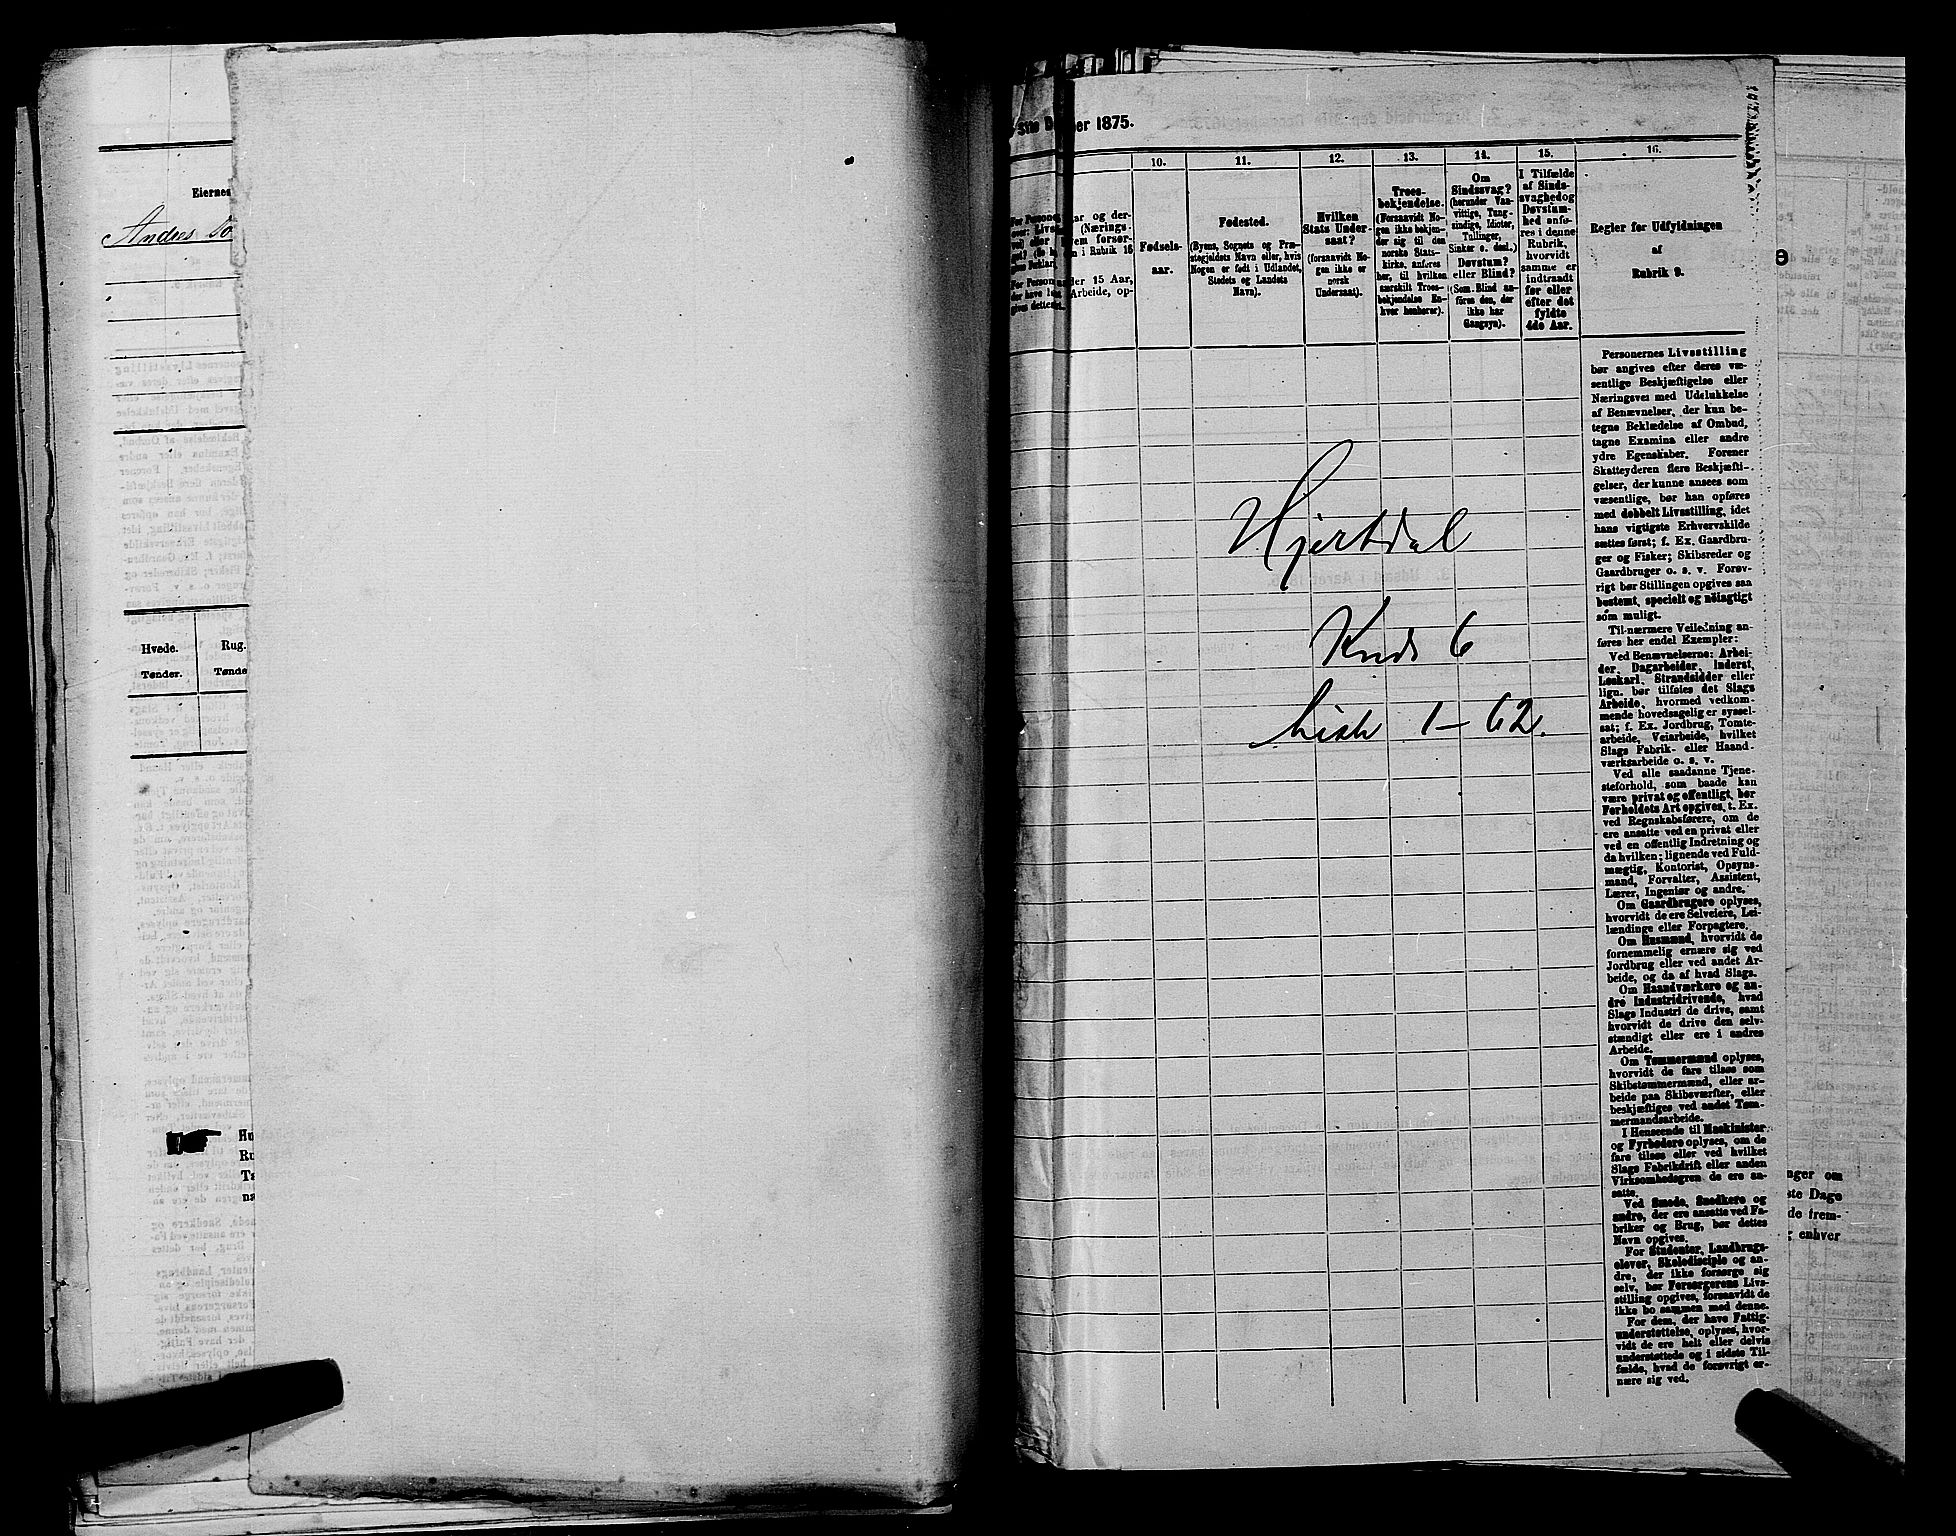 Eiernes
Andres
Hvede.
Rug.
Tønder.
Tønde
Hu
Ru
Ta
næ
1875.
10.
11.
12.
13.
14.
15.
16.
ar og der-
(Nærings-
em forsør-
n i Rubrik 16
der 15 Aar,
Arbeide, op-
Fødsels-
aar.
Fødested.
(Byens, Sognets og Præ-
stegjeldets Navn eller, hvis
Nogen er født i Udlandet,
Stedets og Landets
Navn).
Hvilken
Stats Under-
saat?
(forsaavidt No-
gen ikke er
norsk
Undersaat).
Troes-
bekjendelse.
(Forsaavidt No-
gen ikke bekjen-
der sig til den
norske Stats-
kirke, anføres
her, til hvilken
særskilt Troes-
bekjendelse En-
hver henhører).
Om
Sindssvag?
(herunder Van-
vittige, Tung-
sindige, Idioter,
Tullinger,
Sinker o. desl.)
Døvstum?
eller Blind?
(Som Blind an-
føres den, der
ikke har
Gangsyn).
I Tilfælde
af Sinds-
svaghed og
Døvstum-
hed anfø-
res i denne
Rubrik,
hvorvidt
samme er
indtraadt
før eller
efter det
fyldte
4de Aar.
Regler for Udfyldningen
af
Rubrik 9.
Hjertdal
Kreds 6
Liste 1-62.
Personernes Livsstilling
bør angives efter deres væ-
sentlige Beskjæftigelse eller
Næringsvei med Udelukkelse
af Benævnelser, der kun be-
tegne Beklædelse af Ombud,
tagne Examina eller andre
ydre Egenskaber. Forener
Skatteyderen flere Beskjæfti-
gelser, der kunne ansees som
væsentlige, bør han opføres
med dobbelt Livsstilling, idet
hans vigtigste Erhvervskilde
sættes først; f. Ex. Gaardbru-
ger og Fisker; Skibsreder og
Gaardbruger o. s. v. Forøv-
rigt bør Stillingen opgives saa
bestemt, specielt og nöiagtigt
som muligt.
Til nærmere Veiledning an-
føres her endel Exempler:
Ved Benævnelserne: Arbei-
der, Dagarbeider, Inderst,
Løskarl, Strandsidder eller
lign. bør tilføies det Slags
Arbeide, hvormed vedkom-
mende hovedsagelig er syssel-
sat; f. Ex. Jordbrug, Tomte-
arbeide, Veiarbeide, hvilket
Slags Fabrik- eller Haand-
værksarbeide o. s. v.
Ved alle saadanne Tjene-
steforhold, som baade kan
være privat og offentligt, bør
Forholdets Art opgives, t. Ex.
ved Regnskabsførere, om de
ere ansatte ved en privat eller
ved en offentlig Indretning og
da hvilken; lignende ved Fuld-
mægtig, Kontorist, Opsyns-
mand, Forvalter, Assistent,
Lærer, Ingeniør og andre.
Om Gaardbrugere oplyses,
hvorvidt de ere Selveiere, Lei-
lændinge eller Forpagtere.
Om Husmænd, hvorvidt de
fornemmelig ernære sig ved
Jordbrug eller ved andet Ar-
beide, og da af hvad Slags.
Om Haandværkere og an-
dre Industridrivende, hvad
Slags Industri de drive, samt
hvorvidt de drive den selv-
stændigt eller ere i andres
Arbeide.
Om Tømmermænd oplyses,
hvorvidt de fare tilsøs som
Skibstømmermænd, eller ar-
beide paa Skibsværfter, eller
beskjæftiges ved andet Tøm-
mermandsarbeide.
I Henseende til Maskinister
og Fyrbødere oplyses, om de
fare tilsøs eller ved hvilket
Slags Fabrikdrift eller anden
Virksomhedsgren de ere an-
satte.
Ved Smede, Snedkere og
andre, der ere ansatte ved Fa-
briker og Brug, bør dettes
Navn opgives.
For Studenter, Landbrugs-
elever, Skoledisciple og an-
dre, der ikke forsørge sig
selv, bør Forsørgerens Livs-
stilling opgives, forsaavidt de
ikke bo sammen med denne.
For dem, der have Fattig-
understøttelse, oplyses, hvor-
vidt de ere helt eller delvis
understøttede og i sidste Til-
fælde, hvad de forøvrigt er-
nære sig ved.
nger om
ste Dage
de frem-
enhver